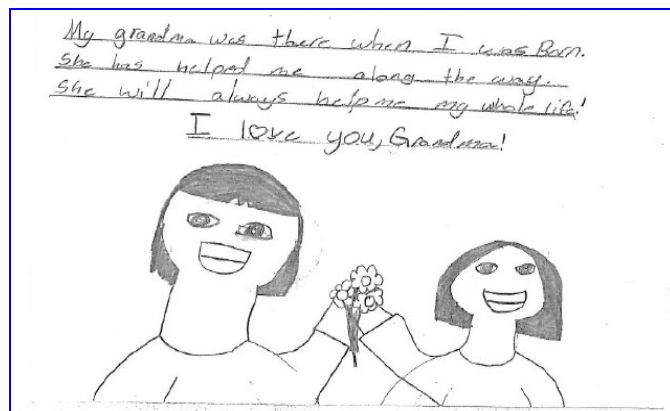 My grandma was there when I was Born.
She has helped me along the way.
She will always help me my whole life!
I love you, Grandma!